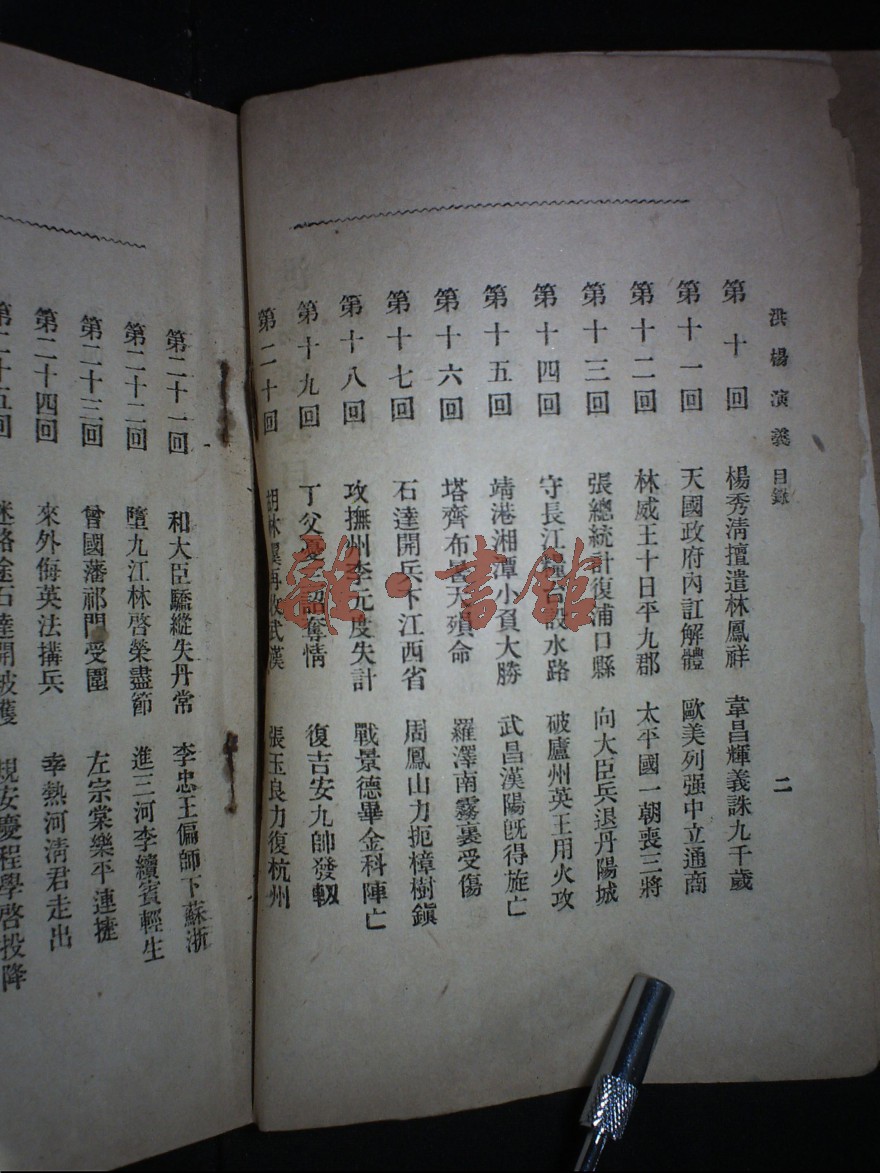 洪楊演義 目錄
二
第十回 楊秀淸擅遣林鳳祥 韋昌輝義誅九千歲
第十一回 天國政府內訌解體 歐美列强中立通商
第十二回 林威王十日平九郡 太平國一朝喪三將
第十三回 張總統計復浦口縣 向大臣兵退丹陽城
第十四回 守長江 設水路 破廬州英王用火攻
第十五回 靖港湘潭小負大勝 武昌漢陽旣得旋亡
第十六回 塔齊布暑天殞命 羅澤南霧裏受傷
第十七回 石達開兵下江西省 周鳳山力扼樟樹鎭
第十八回 攻撫州李元度失計 戰景德畢金科陣亡
第十九回 丁父憂 詔奪情 復吉安九帥發軔
第二十回 胡林翼再 武漢 張玉良力復杭州
第二十一回 和大臣驕縱失丹常 李忠王偏師下蘇浙
第二十二回 墮九江林啓榮盡節 進三河李續賓輕生
第二十三回 曾國藩祁門受圍 左宗棠樂平連捷
第二十四回 來外侮英法搆兵 幸熱河淸君走出
第二十五回 迷路途石達開被獲 規安慶程學啓投降
雜·書館